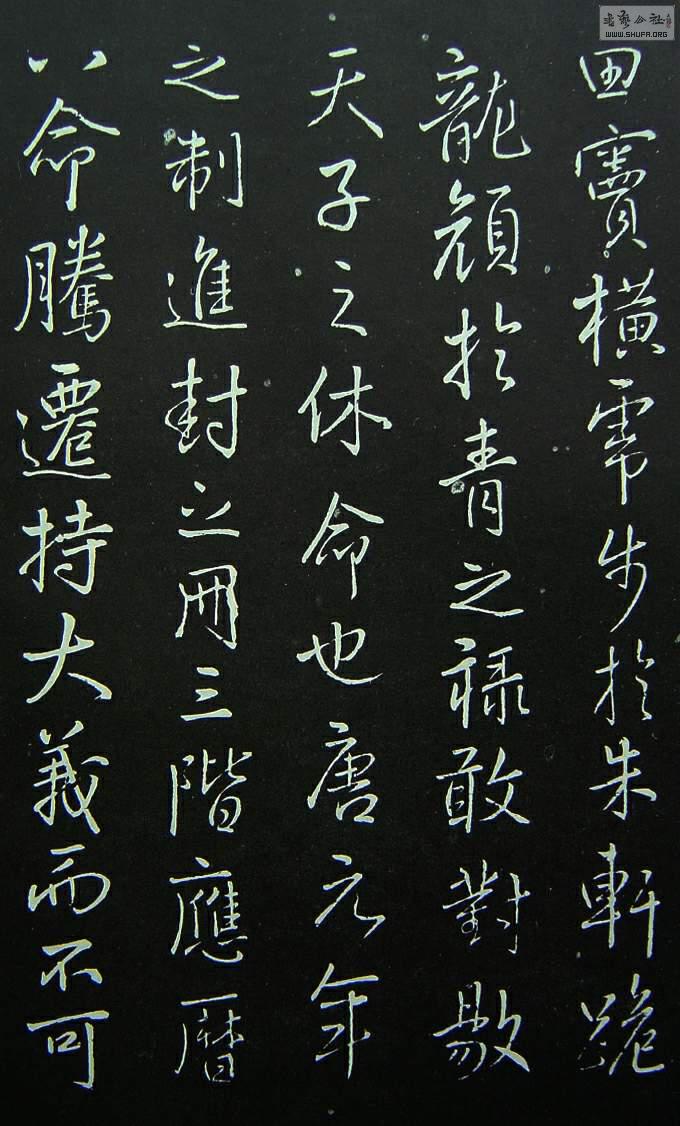 書藝公社
WWW.SHUFA.ORG
田竇橫步於朱軒跪
龍顏於青之祿敢對敭
天子之休命也唐元年
之制進封之冊三階應曆
八命騰遷持大義而不可